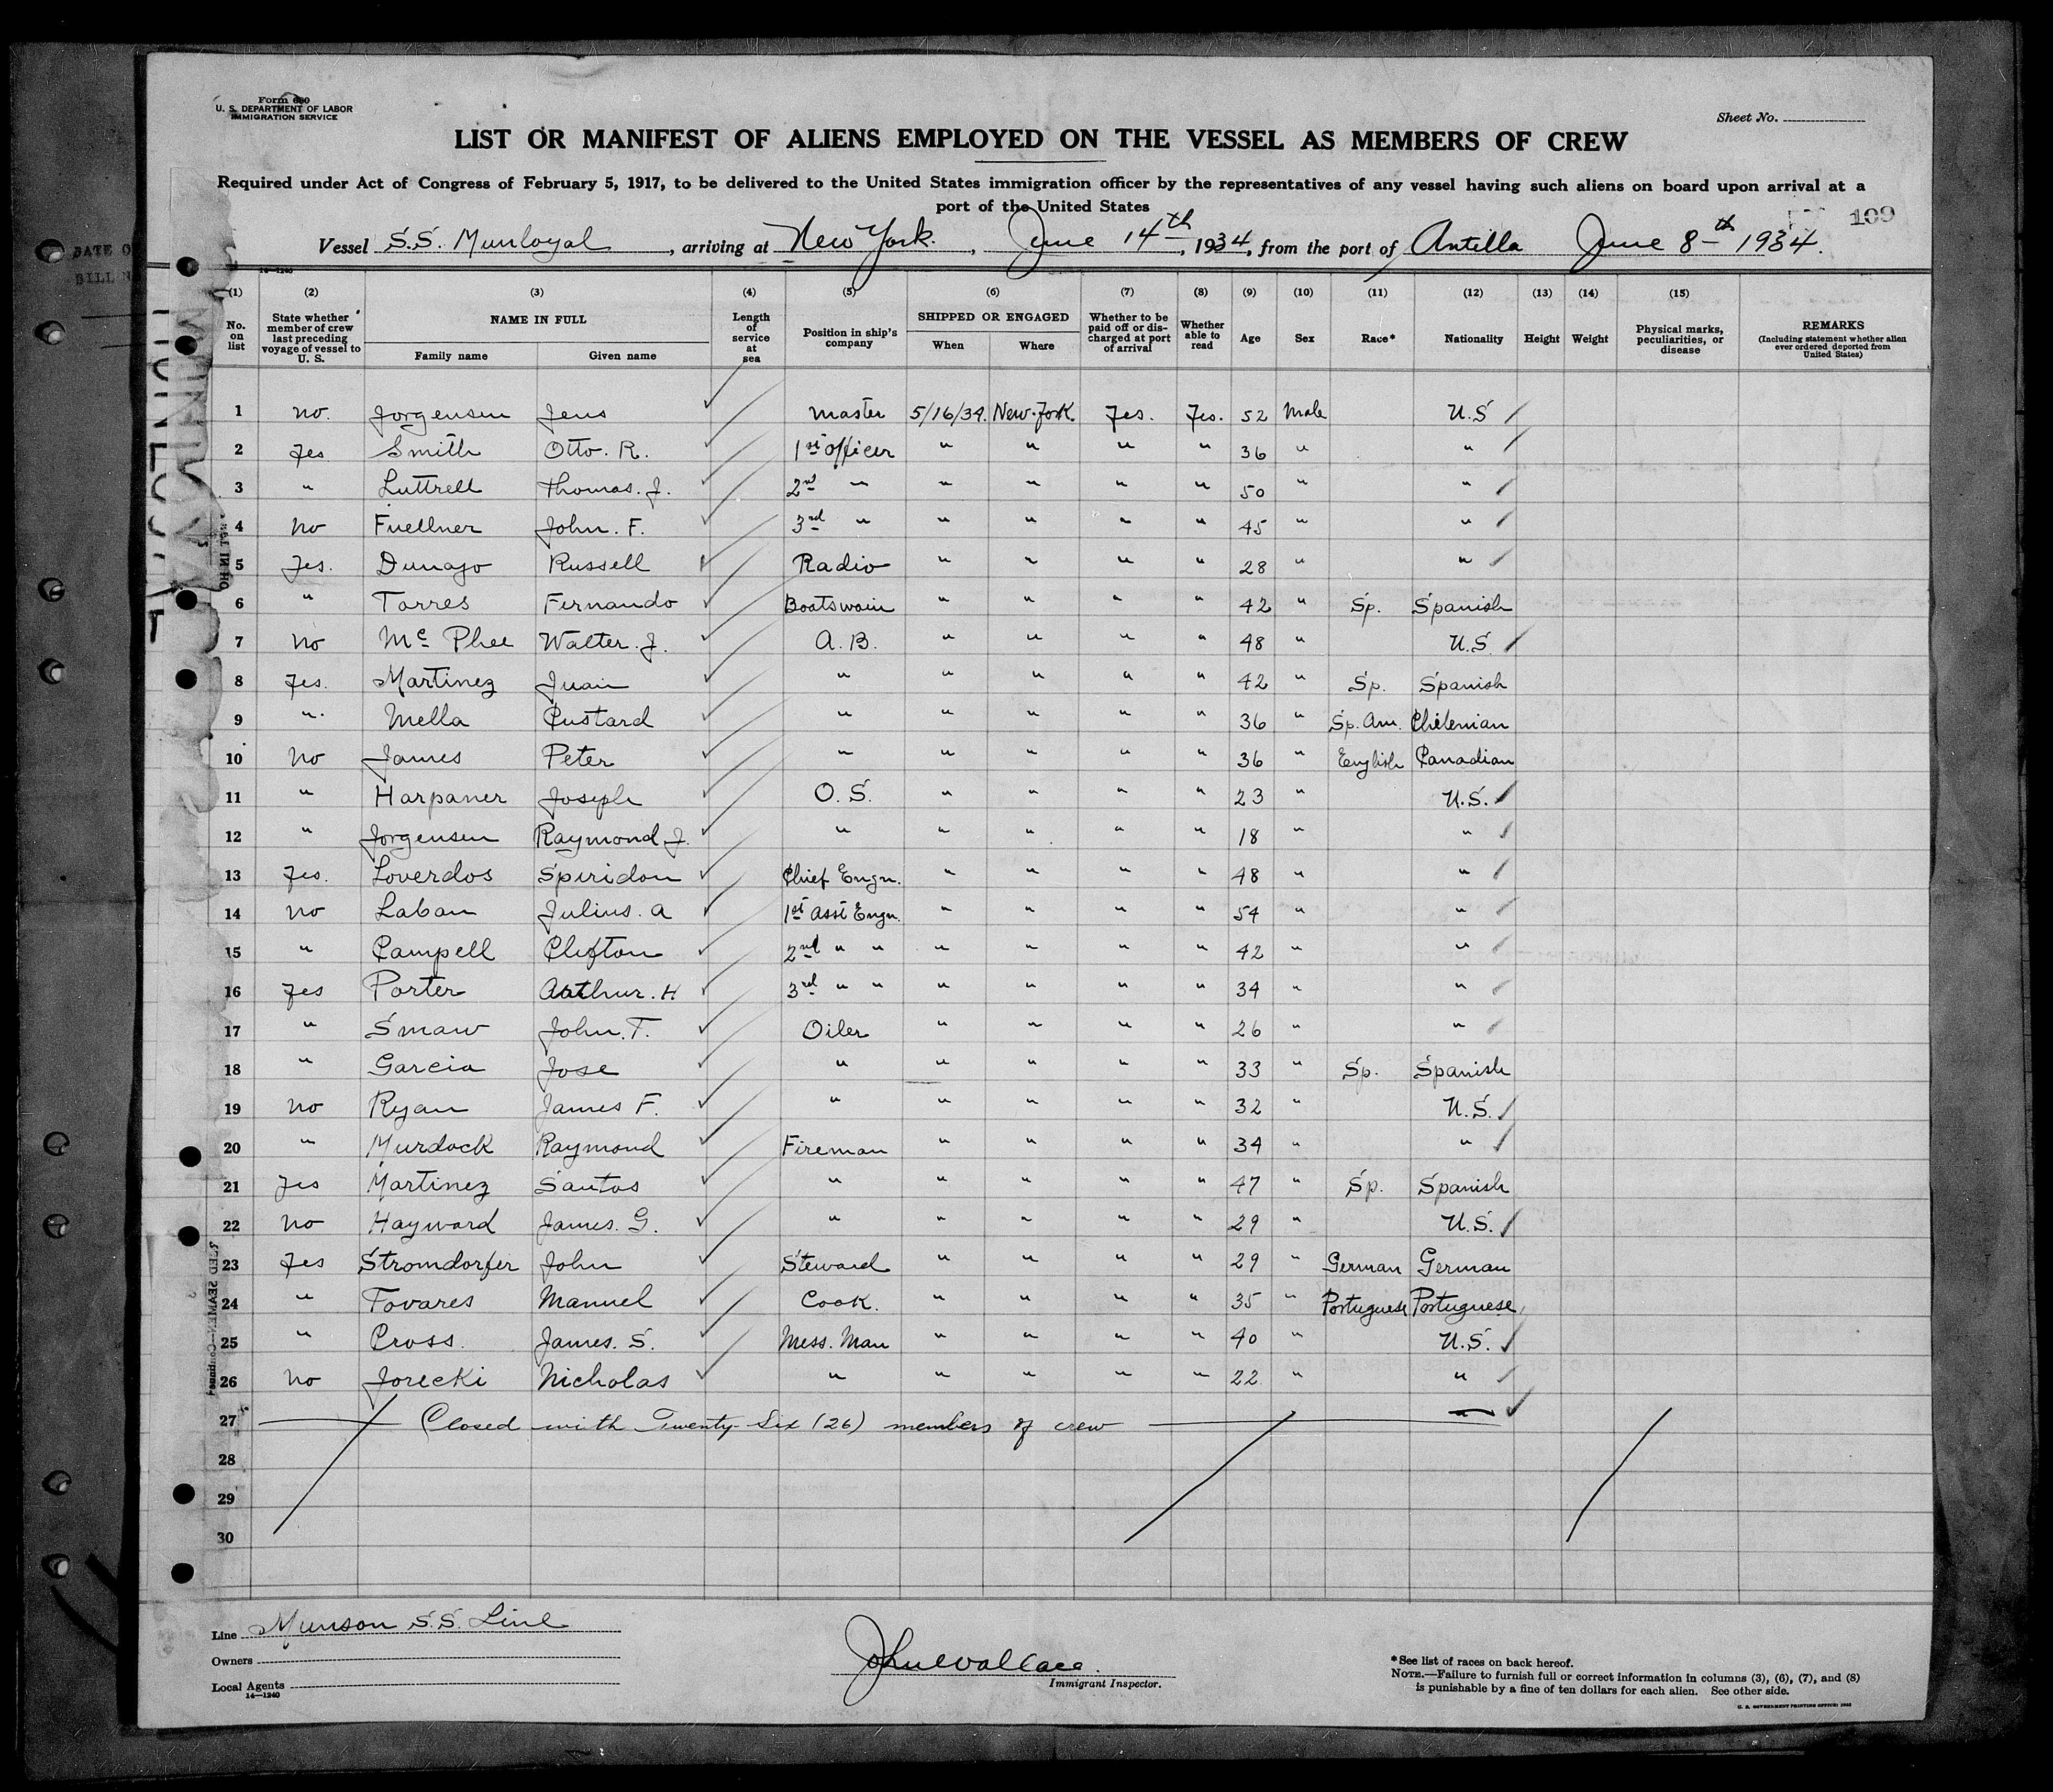 Form 680
U. S. DEPARTMENT OF LABOR
IMMIGRATION SERVICE
Sheet No.
LIST OR MANIFEST OF ALIENS EMPLOYED ON THE VESSEL AS MEMBERS OF CREW
Required under Act of Congress of February 5, 1917, to be delivered to the United States immigration officer by the representatives of any vessel having such aliens on board upon arrival at a
port of the United States
109
Vessel S.S. Munloyal, arriving at New York., June 14th, 1934, from the port of Antilla June 8th 1934.
14—1240
(1) (2) (3) (4) (5) (6) (7) (8) (9) (10) (11) (12) (13) (14) (15)
No. on list State whether member of crew last preceding voyage of vessel to U. S. NAME IN FULL Family name Given name Length of service at sea Position in ship's company SHIPPED OR ENGAGED When Where Whether to be paid off or discharged at port of arrival Whether able to read Age Sex Race* Nationality Height Weight Physical marks, peculiarities, or disease REMARKS (Including statement whether alien ever ordered deported from United States)
1 no. Jorgensen Jens master 5/16/34. New York Yes. Yes. 52 Male U.S
2 Yes Smith Otto. R. 1st officer " " " " 36 " "
3 " Luttrell Thomas. J. 2nd " " " " " 50 " "
4 no Fuellner John. F. 3rd " " " " " 45 " "
5 Yes. Dunajo Russell Radio " " " " 28 " "
6 " Torres Fernando Boatswain " " " " 42 " Sp. Spanish
7 no Mc Phee Walter. J. A. B. " " " " 48 " U.S.
8 Yes. Martinez Juan " " " " " 42 " Sp. Spanish
9 " Mella Custard " " " " " 36 " Sp. Am. Chilenian
10 no James Peter " " " " " 36 " English Canadian
11 " Harpaner Joseph O. S. " " " " 23 " U.S.
12 " Jorgensen Raymond J. " " " " " 18 " "
13 Yes. Loverdos Spiridon Chief Engn. " " " " 48 " "
14 no Laban Julius. A 1st Asst Engn. " " " " 54 " "
15 " Campell Clifton 2nd " " " " " " 42 " "
16 Yes Porter Arthur. H 3rd " " " " " " 34 " "
17 " Smaw John. T. Oiler " " " " 26 " "
18 " Garcia Jose " " " " " 33 " Sp. Spanish
19 no Ryan James F. " " " " " 32 " U.S.
20 " Murdock Raymond Fireman " " " " 34 " "
21 Yes Martinez Santos " " " " " 47 " Sp. Spanish
22 no Hayward James. G. " " " " " 29 " U.S.
23 Yes Stromdorfer John Steward " " " " 29 " German German
24 " Tovares Manuel Cook. " " " " 35 " Portuguese Portuguese
25 " Cross. James. S. Mess. Man " " " " 40 " U.S.
26 no Jorecki Nicholas " " " " " 22 " "
27 Closed with Twenty-Six (26) members of crew
28
29
30
Line Munson S.S. Line
Owners
Local Agents
14—1240
John Wallace.
Immigrant Inspector.
*See list of races on back hereof.
NOTE.—Failure to furnish full or correct information in columns (3), (6), (7), and (8)
is punishable by a fine of ten dollars for each alien. See other side.